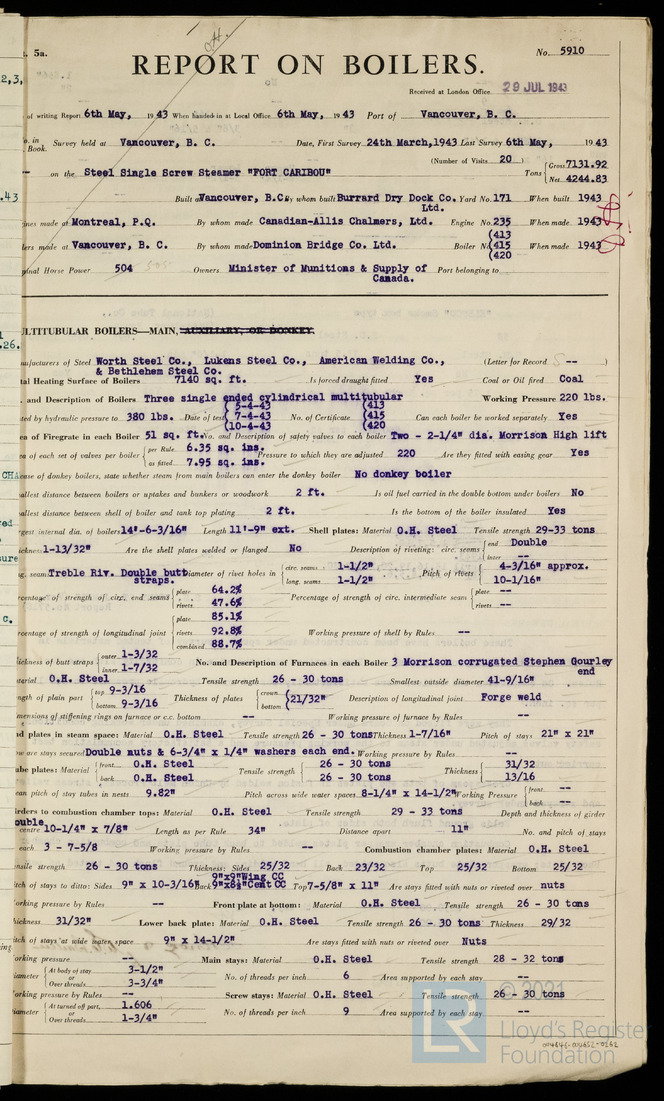 5a.
No. 5910
REPORT ON BOILERS.
Received at London Office 29 JUL 1943
of writing Report 6th May, 1943 When handed in at Local Office 6th May, 1943 Port of Vancouver, B. C.
Survey held at Vancouver, B. C. Date, First Survey 24th March, 1943 Last Survey 6th May, 1943
Book.
(Number of Visits 20 )
on the Steel Single Screw Steamer "FORT CARIBOU" Tons { Gross 7131.92
Net 4244.83
Built at Vancouver, B.C. By whom built Burrard Dry Dock Co. Ltd. Yard No. 171 When built 1943
ines made at Montreal, P.Q. By whom made Canadian-Allis Chalmers, Ltd. Engine No. 235 When made 1943
ers made at Vancouver, B. C. By whom made Dominion Bridge Co. Ltd. Boiler No. (413 (415 (420 When made 1943
inal Horse Power 504 Owners Minister of Munitions & Supply of Canada. Port belonging to
LTITUBULAR BOILERS—MAIN, AUXILIARY, OR DONKEY.
nufacturers of Steel Worth Steel Co., Lukens Steel Co., American Welding Co., & Bethlehem Steel Co. (Letter for Record -- )
al Heating Surface of Boilers 7140 sq. ft. Is forced draught fitted Yes Coal or Oil fired Coal
and Description of Boilers Three single ended cylindrical multitubular Working Pressure 220 lbs.
ted by hydraulic pressure to 380 lbs. Date of test (5-4-43 (7-4-43 (10-4-43 No. of Certificate (413 (415 (420 Can each boiler be worked separately Yes
ea of Firegrate in each Boiler 51 sq. ft. No. and Description of safety valves to each boiler Two - 2-1/4" dia. Morrison High lift
ea of each set of valves per boiler { per Rule 6.35 sq. ins. as fitted 7.95 sq. ins. Pressure to which they are adjusted 220 Are they fitted with easing gear Yes
ase of donkey boilers, state whether steam from main boilers can enter the donkey boiler No donkey boiler
allest distance between boilers or uptakes and bunkers or woodwork 2 ft. Is oil fuel carried in the double bottom under boilers No
allest distance between shell of boiler and tank top plating 2 ft. Is the bottom of the boiler insulated Yes
rgest internal dia. of boilers 14'-6-3/16" Length 11'-9" ext. Shell plates: Material O.H. Steel Tensile strength 29-33 tons
ickness 1-13/32" Are the shell plates welded or flanged No Description of riveting: circ. seams { end Double inter --
g. seams Treble Riv. Double butt straps. Diameter of rivet holes in { circ. seams 1-1/2" long. seams 1-1/2" Pitch of rivets { 4-3/16" approx. 10-1/16"
rcentage of strength of circ. end seams { plate 64.2% rivets 47.6% Percentage of strength of circ. intermediate seam { plate -- rivets --
rcentage of strength of longitudinal joint { plate 85.1% rivets 92.8% combined 88.7% Working pressure of shell by Rules --
ickness of butt straps { outer 1-3/32 inner 1-7/32 No. and Description of Furnaces in each Boiler 3 Morrison corrugated Stephen Gourley end
terial O.H. Steel Tensile strength 26 - 30 tons Smallest outside diameter 41-9/16"
ngth of plain part { top 9-3/16 bottom 9-3/16 Thickness of plates { crown bottom } 21/32" Description of longitudinal joint Forge weld
mensions of stiffening rings on furnace or c.c. bottom -- Working pressure of furnace by Rules --
nd plates in steam space: Material O.H. Steel Tensile strength 26 - 30 tons Thickness 1-7/16" Pitch of stays 21" x 21"
ow are stays secured Double nuts & 6-3/4" x 1/4" washers each end. Working pressure by Rules --
ube plates: Material { front O.H. Steel back O.H. Steel Tensile strength { 26 - 30 tons 26 - 30 tons Thickness { 31/32 13/16
ean pitch of stay tubes in nests 9.82" Pitch across wide water spaces 8-1/4" x 14-1/2" Working Pressure { front -- back --
irders to combustion chamber tops: Material O.H. Steel Tensile strength 29 - 33 tons Depth and thickness of girder
ouble
centre 10-1/4" x 7/8" Length as per Rule 34" Distance apart 11" No. and pitch of stays
each 3 - 7-5/8 Working pressure by Rules -- Combustion chamber plates: Material O.H. Steel
nsile strength 26 - 30 tons Thickness: Sides 25/32 Back 23/32 Top 25/32 Bottom 25/32
itch of stays to ditto: Sides 9" x 10-3/16" Back 9"x9"Wing CC Cent CC Top 7-5/8" x 11" Are stays fitted with nuts or riveted over nuts
orking pressure by Rules -- Front plate at bottom: Material O.H. Steel Tensile strength 26 - 30 tons
hickness 31/32" Lower back plate: Material O.H. Steel Tensile strength 26 - 30 tons Thickness 29/32
itch of stays at wide water space 9" x 14-1/2" Are stays fitted with nuts or riveted over Nuts
orking pressure -- Main stays: Material O.H. Steel Tensile strength 28 - 32 tons
iameter { At body of stay 3-1/2" or Over threads 3-3/4" No. of threads per inch 6 Area supported by each stay --
orking pressure by Rules -- Screw stays: Material O.H. Steel Tensile strength 26 - 30 tons
iameter { At turned off part, 1.606 or Over threads 1-3/4" No. of threads per inch 9 Area supported by each stay --
© 2021
LR
Lloyd's Register
Foundation